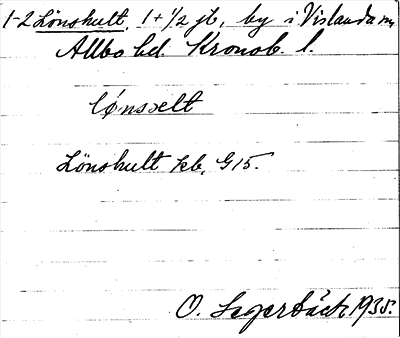 1-2 Lönshult, 1+1/2 jb, by i Vislanda sn,
Allbo hd. Kronob. l.
lǿnsølt
Lönshult kb, G 15.
O. Segerbäck 1935.